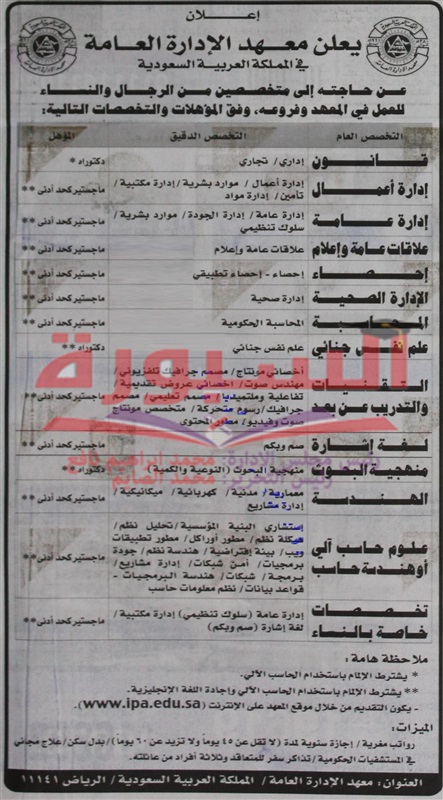 إعلان
يعلن معهد الإدارة العامة
في المملكة العربية السعودية
عن حاجته إلى متخصصين من الرجال والنساء
للعمل في المعهد وفروعه، وفق المؤهلات والتخصصات التالية:
التخصص العام التخصص الدقيق المؤهل
قانون إداري/ تجاري دكتوراه *
إدارة أعمال إدارة أعمال/ موارد بشرية/ إدارة مكتبية/ ماجستير كحد أدنى**
تأمين/ إدارة مواد
إدارة عامة إدارة عامة/ إدارة الجودة/ موارد بشرية/ ماجستير كحد أدنى**
سلوك تنظيمي
علاقات عامة وإعلام علاقات عامة وإعلام ماجستير كحد أدنى**
إحصاء إحصاء - إحصاء تطبيقي ماجستير كحد أدنى**
الإدارة الصحية إدارة صحية ماجستير كحد أدنى**
المحاسبة المحاسبة الحكومية ماجستير كحد أدنى**
علم نفس جنائي علم نفس جنائي دكتوراه**
التقنيات أخصائي مونتاج/ مصمم جرافيك تلفزيوني/
والتدريب عن بعد مهندس صوت/ أخصائي عروض تقديمية/
تفاعلية وملتميديا/ مصمم تعليمي/ مصمم ماجستير كحد أدنى**
جرافيك/ رسوم متحركة/ متخصص مونتاج
صوت وفيديو/ مطور المحتوى
لغة إشارة صم وبكم ماجستير كحد أدنى**
منهجية البحوث منهجية البحوث (النوعية والكمية) دكتوراه*
الهندسة معمارية/ مدنية/ كهربائية/ ميكانيكية/ ماجستير كحد أدنى**
إدارة مشاريع
علوم حاسب آلي إستشاري البنية المؤسسية/ تحليل نظم/
أو هندسة حاسب هيكلة نظم/ مطور أوراكل/ مطور تطبيقات
ويب/ بيئة إفتراضية/ هندسة نظم/ جودة ماجستير كحد أدنى**
برمجيات/ أمن شبكات/ إدارة مشاريع/
برمجة/ شبكات/ هندسة البرمجيات -
قواعد بيانات/ نظم معلومات حاسب
تخصصات إدارة عامة (سلوك تنظيمي) إدارة مكتبية/ ماجستير كحد أدنى**
خاصة بالنساء لغة إشارة (صم وبكم)
ملاحظة هامة:
* يشترط الإلمام باستخدام الحاسب الآلي.
** يشترط الإلمام باستخدام الحاسب الآلي وإجادة اللغة الإنجليزية.
- يكون التقديم من خلال موقع المعهد على الإنترنت (www.ipa.edu.sa)
الميزات:
رواتب مغرية/ إجازة سنوية لمدة (لا تقل عن ٤٥ يوماً ولا تزيد عن ٦٠ يوماً)/ بدل سكن/ علاج مجاني
في المستشفيات الحكومية/ تذاكر سفر للمتعاقد وثلاثة أفراد من عائلته.
العنوان: معهد الإدارة العامة/ المملكة العربية السعودية/ الرياض ١١١٤١
السبورة
رئيس مجلس الإدارة: محمد ابراهيم نافع
رئيس التحرير: محمد الصايم